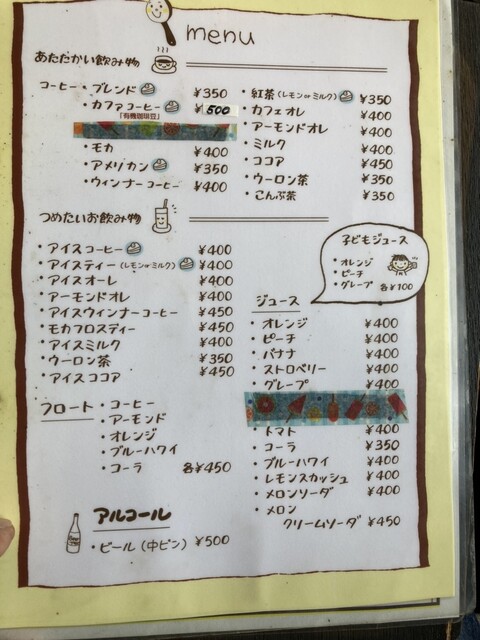 menu
あたたかい飲み物
コーヒー・ブレンド ¥350
・カファコーヒー ¥500
「有機珈琲豆」
・モカ ¥400
・アメリカン ¥350
・ウィンナーコーヒー ¥400
・紅茶(レモンorミルク) ¥350
・カフェオレ ¥400
・アーモンドオレ ¥400
・ミルク ¥400
・ココア ¥450
・ウーロン茶 ¥350
・こんぶ茶 ¥350
つめたいお飲み物
・アイスコーヒー ¥400
・アイスティー(レモンorミルク) ¥400
・アイスオーレ ¥400
・アーモンドオレ ¥400
・アイスウィンナーコーヒー ¥450
・モカフロスティー ¥450
・アイスミルク ¥400
・ウーロン茶 ¥350
・アイスココア ¥450
フロート・コーヒー
・アーモンド
・オレンジ
・ブルーハワイ
・コーラ 各¥450
アルコール
・ビール(中ビン) ¥500
子どもジュース
・オレンジ
・ピーチ
・グレープ 各¥100
ジュース
・オレンジ ¥400
・ピーチ ¥400
・バナナ ¥400
・ストロベリー ¥400
・グレープ ¥400
・トマト ¥400
・コーラ ¥350
・ブルーハワイ ¥400
・レモンスカッシュ ¥400
・メロンソーダ ¥400
・メロン
クリームソーダ ¥450